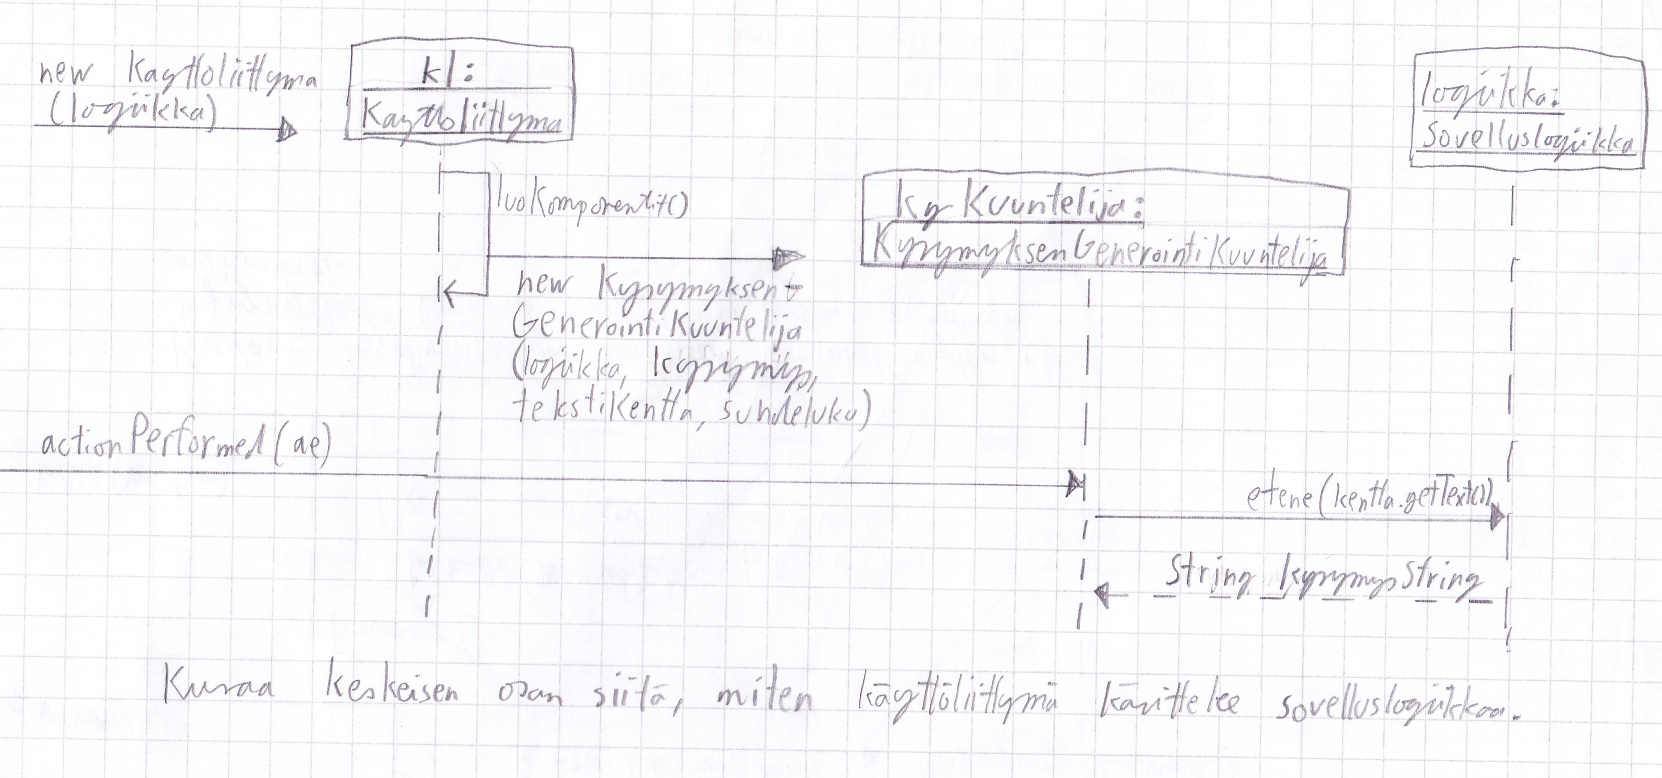 new Kayttoliittyma
(logiikka)
kl:
Kayttoliittyma
logiikka:
Sovelluslogiikka
luoKomponentit()
kysKuuntelija:
KysymyksenGenerointiKuuntelija
new Kysymyksen-
GenerointiKuuntelija
(logiikka, kysymys,
tekstikentta, suhdeluku)
actionPerformed(ae)
etene(kentta.getText())
String kysymysString
Kuvaa keskeisen osan siitä, miten käyttöliittymä käsittelee sovelluslogiikkaa.